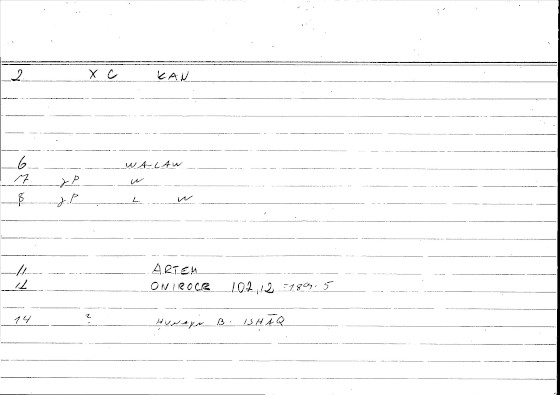 2 X C KAN
6 WA-LAW
7 γP W
8 γP L W
11 ARTEM
12 ONIROCR 102,12 =189.5
14 ? ḤUNAYN B. ISḤĀQ